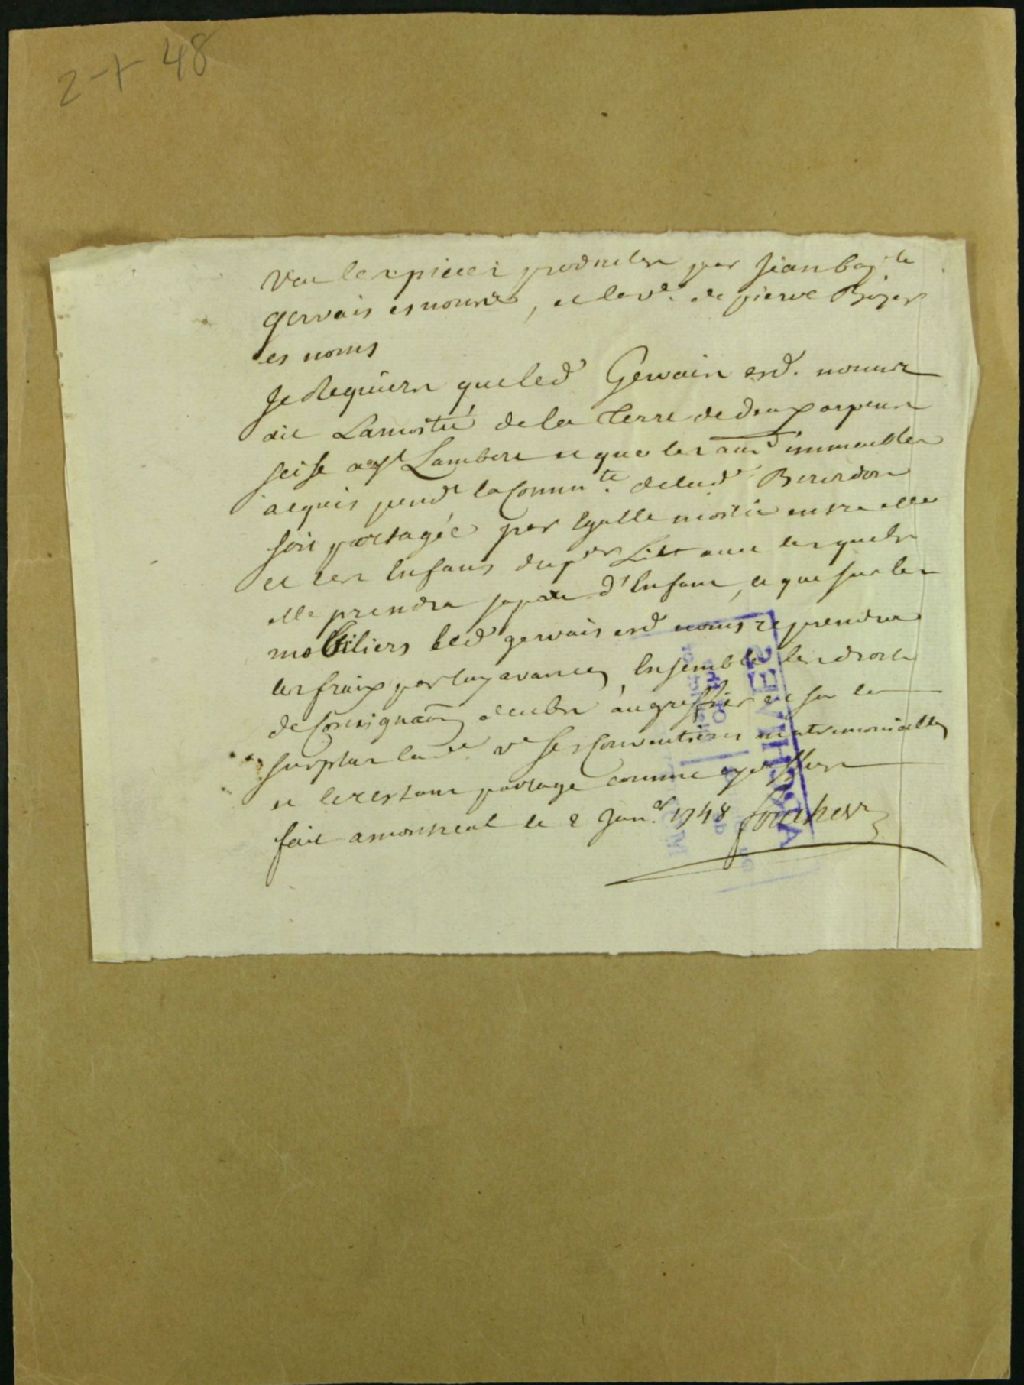 2-1-48
Veu les pieces produites par Jean bap.te
gervais es noms, et la ve. de pierre
es noms
Je Requiers que led. Gervais esd. noms
ait La moitié de la terre de deux arpens
seise a St Lambert et que les aud. immeubles
acquis pend.t la Comm.té de lad.
soit partagée par Egalle moitié entre elle
et les Enfans du pr Lit avec lesquels
elle prendra sa part d'Enfant, et que sur les
mobiliers led. gervais esd. noms reprendra
les fraix par luy avancez Ensemble les droits
de Consignaon deubs au greffier et sur le
surplus lad. ve ses Conventions matrimonialles
et le restant partagé comme
fait a montreal le 2 Janer 1748 foucher
ARCHIVES